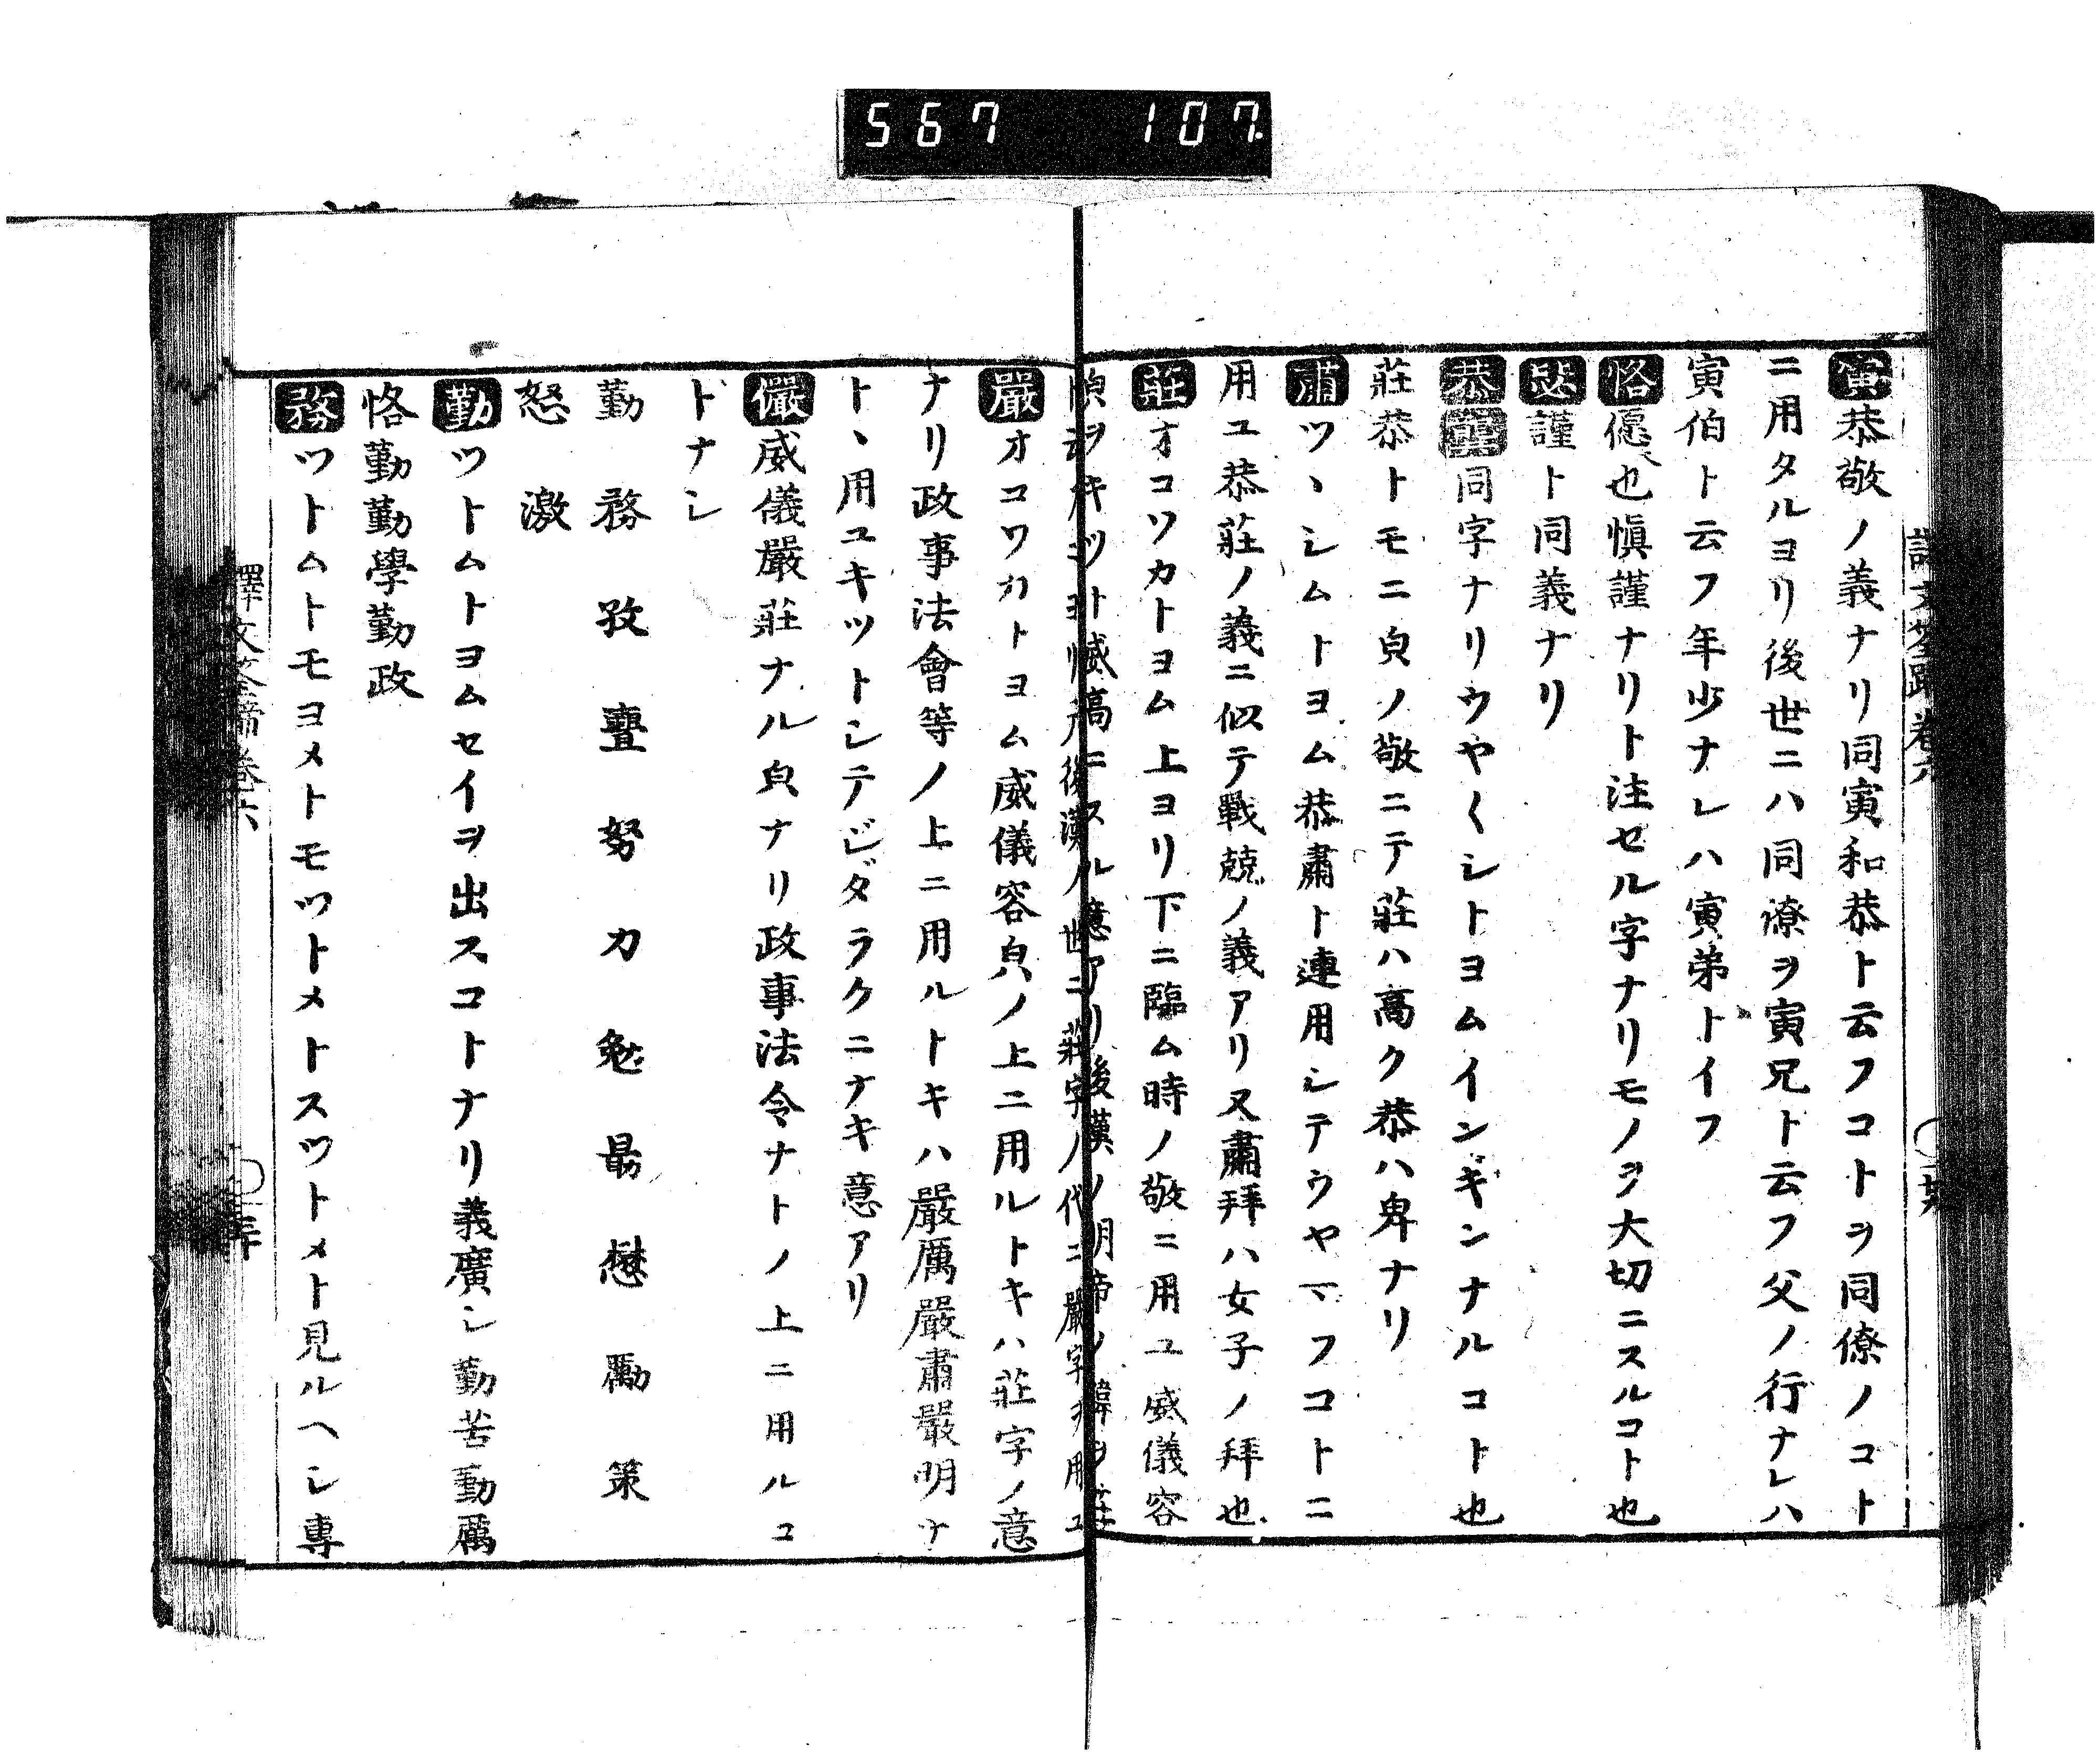 567 107.
寅恭敬ノ義ナリ同寅和恭ト云フコトヲ同僚ノコト
ニ用タルヨリ後世ニハ同僚ヲ寅兄ト云フ父ノ行ナレハ
寅伯ト云フ年少ナレハ寅弟トイフ
恪 也愼謹ナリト注セル字ナリモノヲ大切ニスルコト也
毖謹ト同義ナリ
恭龔同字ナリウヤ〱シトヨムインギンナルコト也
莊恭トモニ皃ノ敬ニテ莊ハ高ク恭ハ卑ナリ
肅ツヽシムトヨム恭肅ト連用シテウヤマフコトニ
用ユ恭莊ノ義ニ似テ戰兢ノ義アリ又肅拜ハ女子ノ拜也
莊オコソカトヨム上ヨリ下ニ臨ム時ノ敬ニ用ユ威儀容
後漢ノ明帝ノ諱ヲ莊
世ニ莊字ノ代ニ嚴字ヲ用ユ
嚴オコソカトヨム威儀容皃ノ上ニ用ルトキハ莊字ノ意
ナリ政事法會等ノ上ニ用ルトキハ嚴厲嚴肅嚴明ナ
トヽ用ユキツトシテジダラクニナキ意アリ
儼威儀嚴莊ナル皃ナリ政事法令ナトノ上ニ用ルコ
トナシ
勤 務 孜 亹 努 力 勉 勗 懋 勵 策
怒 激
勤ツトムトヨムセイヲ出スコトナリ義廣シ勤苦勤厲
恪勤勤學勤政
務ツトムトモヨメトモツトメトスツトメト見ルヘシ專
譯文筌蹄卷六